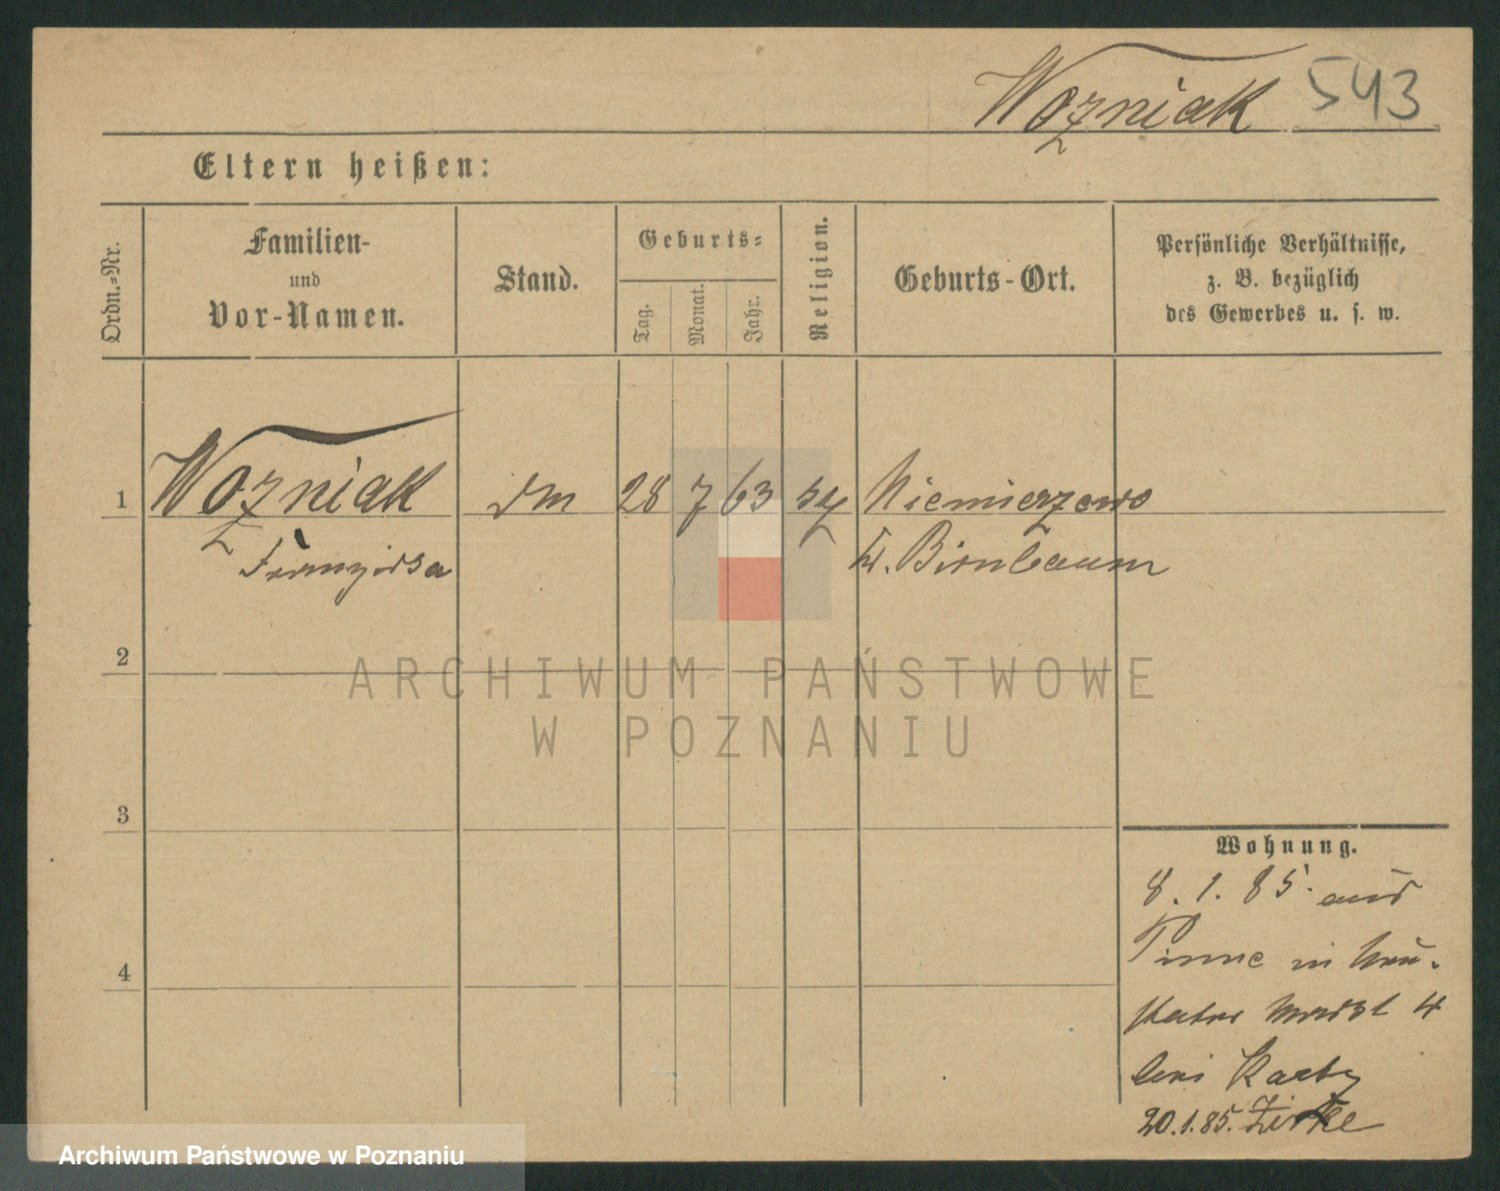 Wozniak 543
Eltern heißen:
Ordn.-Nr.
Familien-
und
Vor-Namen.
Stand.
Geburts-
Tag.
Monat.
Jahr.
Religion.
Geburts-Ort.
Persönliche Verhältnisse,
z. B. bezüglich
des Gewerbes u. s. w.
1 Wozniak 28 7 63 Niemierzewo
Franziska Kr. Birnbaum
2
3
4
Wohnung.
8. 1. 85. aus
Pinne in Neu-
städter Markt 4
bei
20.1.85. Zirke
ARCHIWUM PAŃSTWOWE
W POZNANIU
Archiwum Państwowe w Poznaniu